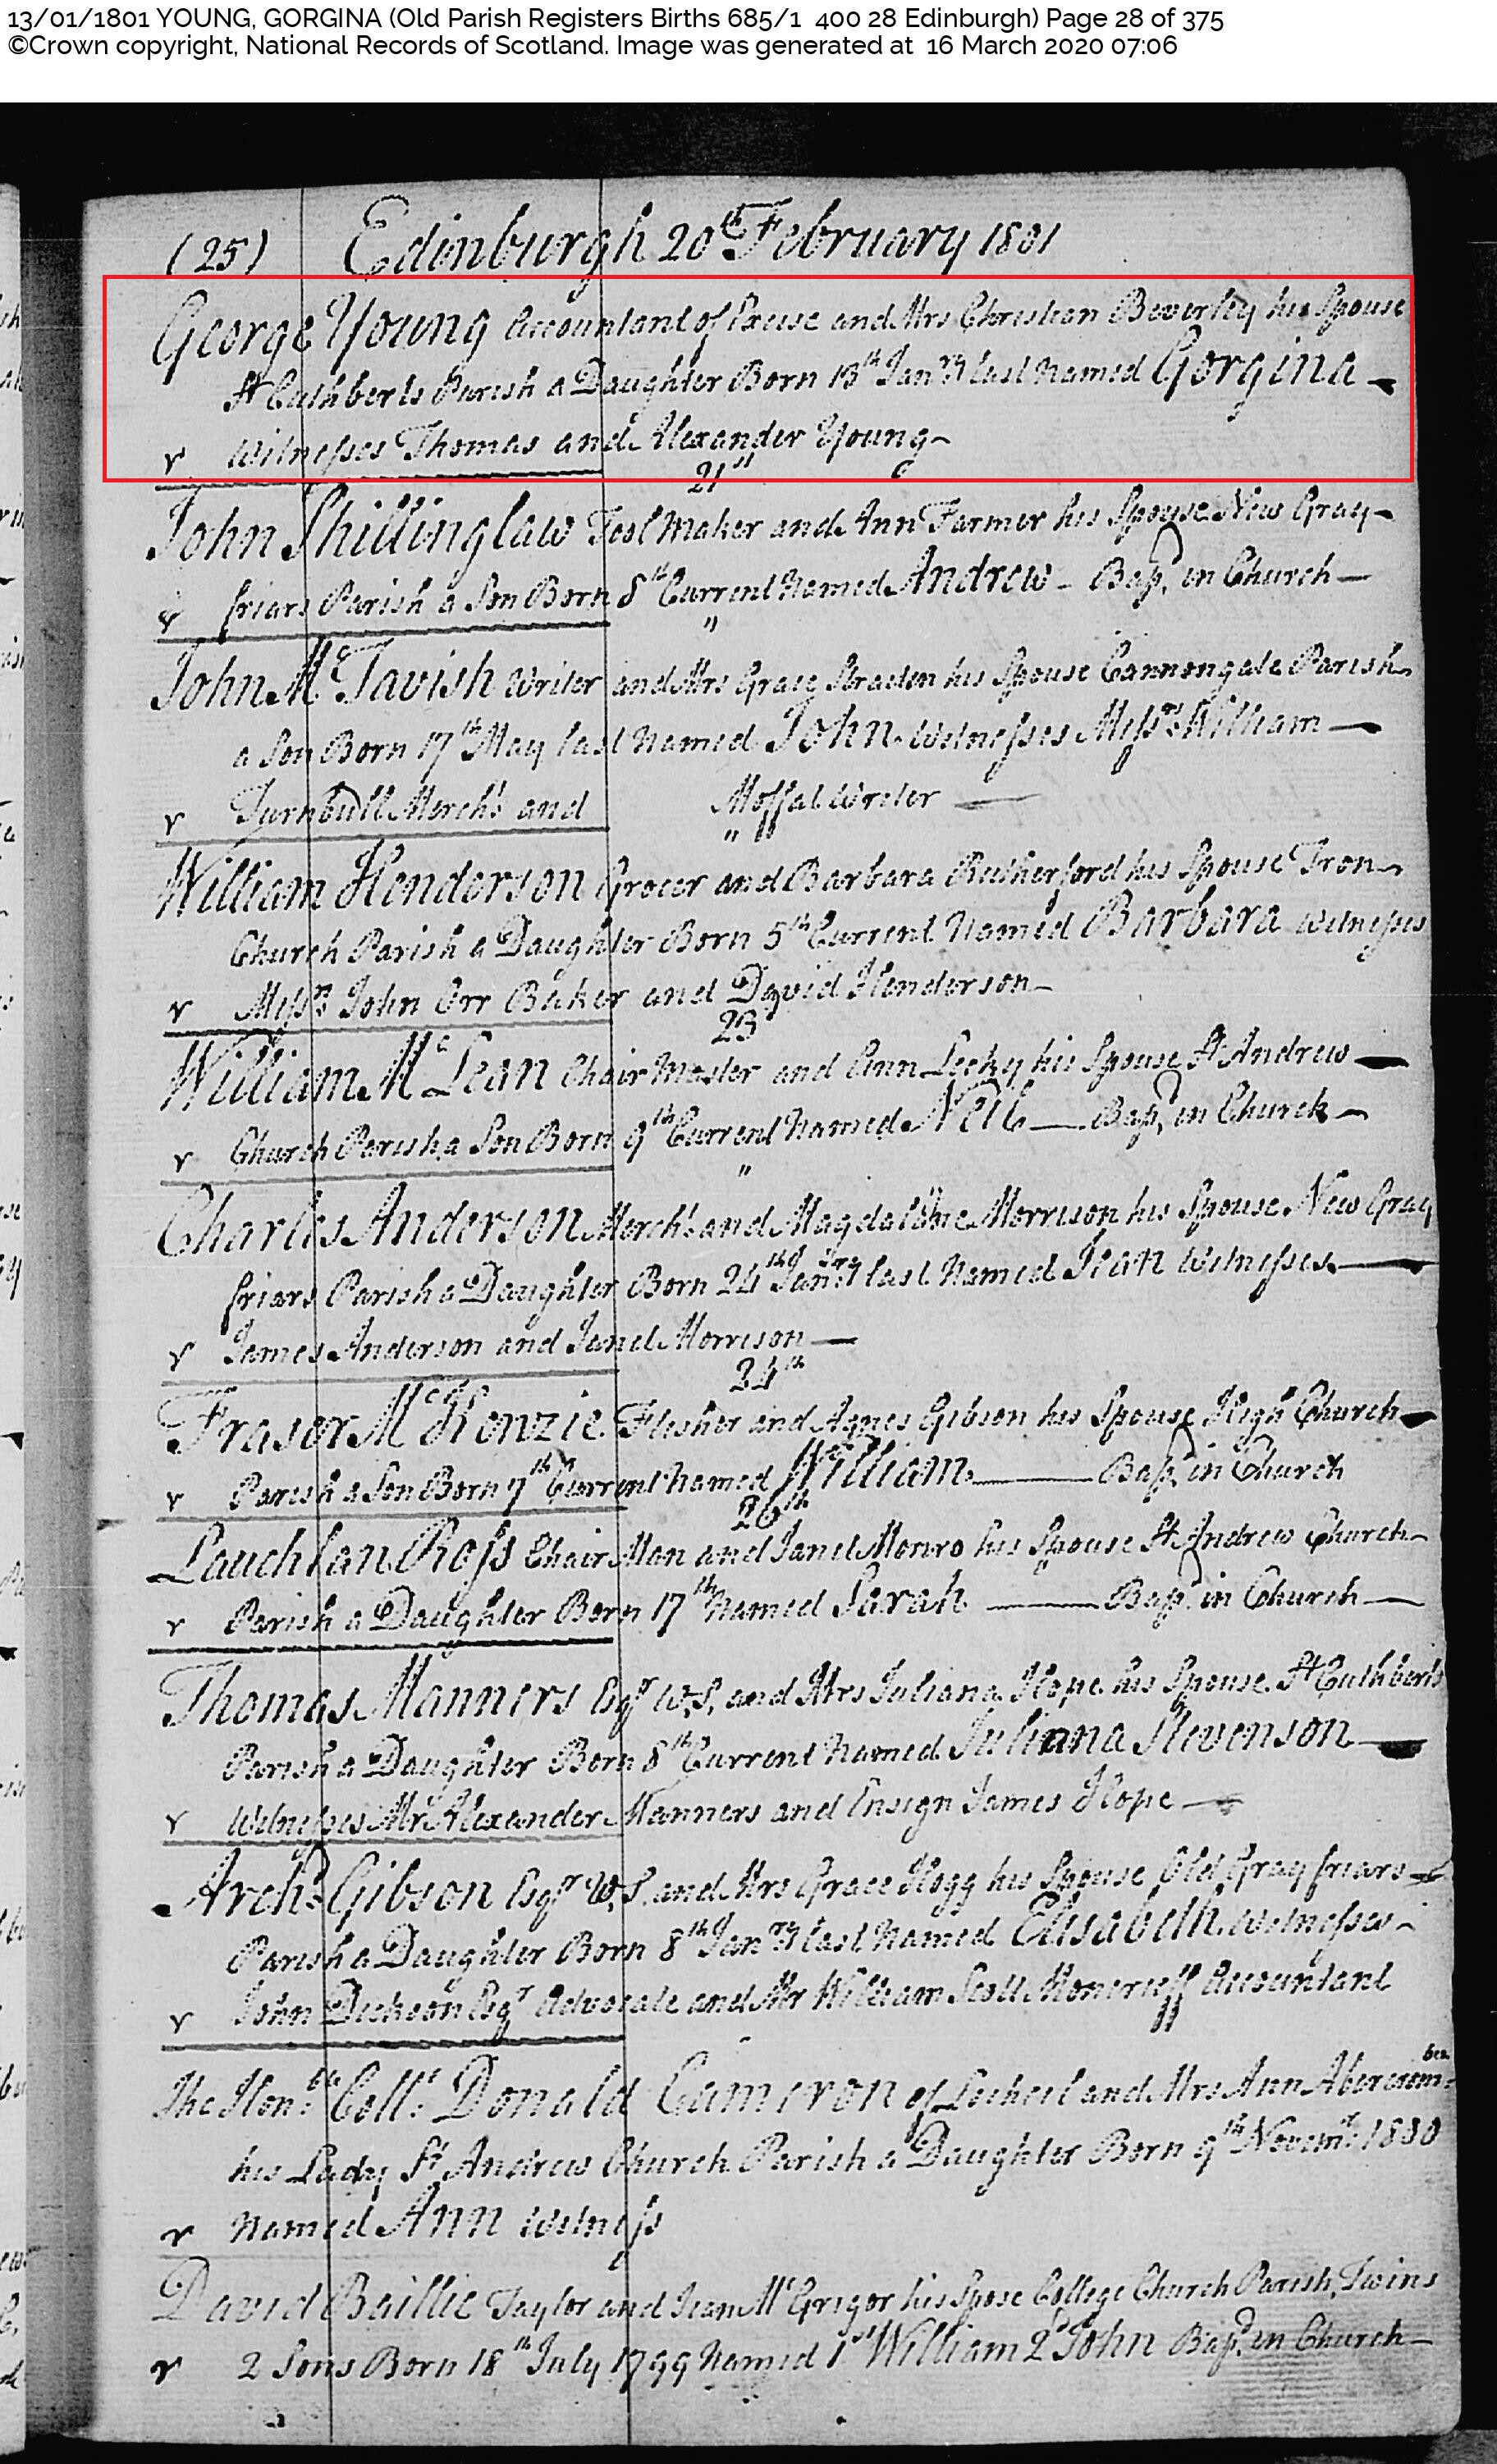 13/01/1801 YOUNG, GORGINA (Old Parish Registers Births 685/1 400 28 Edinburgh) Page 28 of 375
©Crown copyright, National Records of Scotland. Image was generated at 16 March 2020 07:06
(25) Edinburgh 20th February 1801
George Young Accountant of Excise and Mrs Christian Beverley his Spouse
St Cuthberts Parish a Daughter Born 13th Janry last Named Gorgina
v Witnesses Thomas and Alexander Young
21st
John Shillinglaw Tool Maker and Ann Farmer his Spouse New Gray-
friars Parish a Son Born 8th Current Named Andrew - Bapd in Church
"
John McTavish Writer and Mrs Grace his Spouse Cannongate Parish
a Son Born 17th May last Named John Witnesses Messrs William
v Turnbull Mercht and Moffat Writer
"
William Henderson Grocer and Barbara Rutherford his Spouse Tron
Church Parish a Daughter Born 5th Current Named Barbara Witnesses
v Messrs John Orr Baker and David Henderson
23
William McLean Chair Master and Ann Lecky his Spouse St Andrew
v Church Parish a Son Born 9th Current Named Neil Bapd in Church
"
Charles Anderson Mercht and Magdalene Morrison his Spouse New Gray
friars Parish a Daughter Born 24th Janry last Named Jean Witnesses
v James Anderson and Janet Morrison
24th
Fraser McKenzie Flesher and Agnes Gibson his Spouse High Church
v Parish a Son Born 7th Current Named William Bapd in Church
26th
Lauchlan Ross Chair Man and Janet Monro his Spouse St Andrew Church
v Parish a Daughter Born 17th Named Sarah Bapd in Church
Thomas Manners Esqr W.S. and Mrs Juliana Hope his Spouse St Cuthberts
Parish a Daughter Born 8th Current Named Juliana Stevenson
v Witnesses Mr Alexander Manners and Ensign James Hope
Archd Gibson Esqr W.S. and Mrs Grace Hogg his Spouse Old Gray friars
Parish a Daughter Born 8th Janry last Named Elisabeth Witnesses
v John Dickson Esqr Advocate and Mr William Scott Moncrieff Accountant
The Honble Coll: Donald Cameron of Locheil and Mrs Ann Abercrombie
his Lady St Andrew Church Parish a Daughter Born 9th Novemr 1800
v Named Ann Witness
David Baillie Taylor and Jean McGrigor his Spose College Church Parish, Twins
v 2 Sons Born 18th July 1799 Named 1st William 2d John Bapd in Church